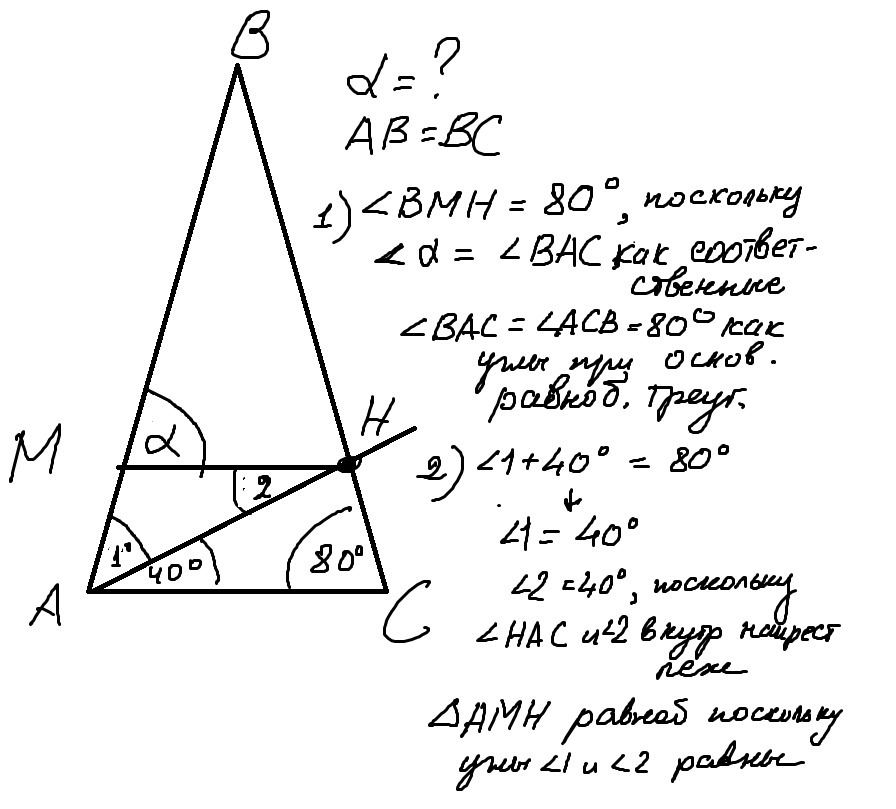 B
α = ?
AB = BC
1) ∠BMH = 80°, поскольку
∠α = ∠BAC как соответ-
ственные
∠BAC = ∠ACB = 80° как
углы при основ.
равноб. треуг.
M
α
H
2
2) ∠1 + 40° = 80°
↓
∠1 = 40°
1
40°
80°
A
C
∠2 = 40°, поскольку
∠HAC и ∠2 внутр накрест
леж
△AMH равноб поскольку
углы ∠1 и ∠2 равны